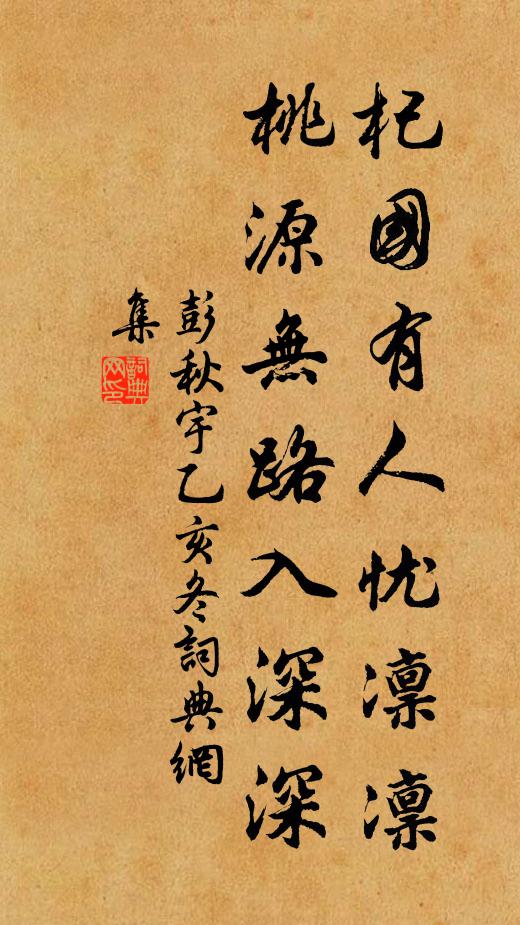 杞國有人忧凛凛
桃源無路入深深
彭秋宇乙亥冬詞典網
集
詞典网印